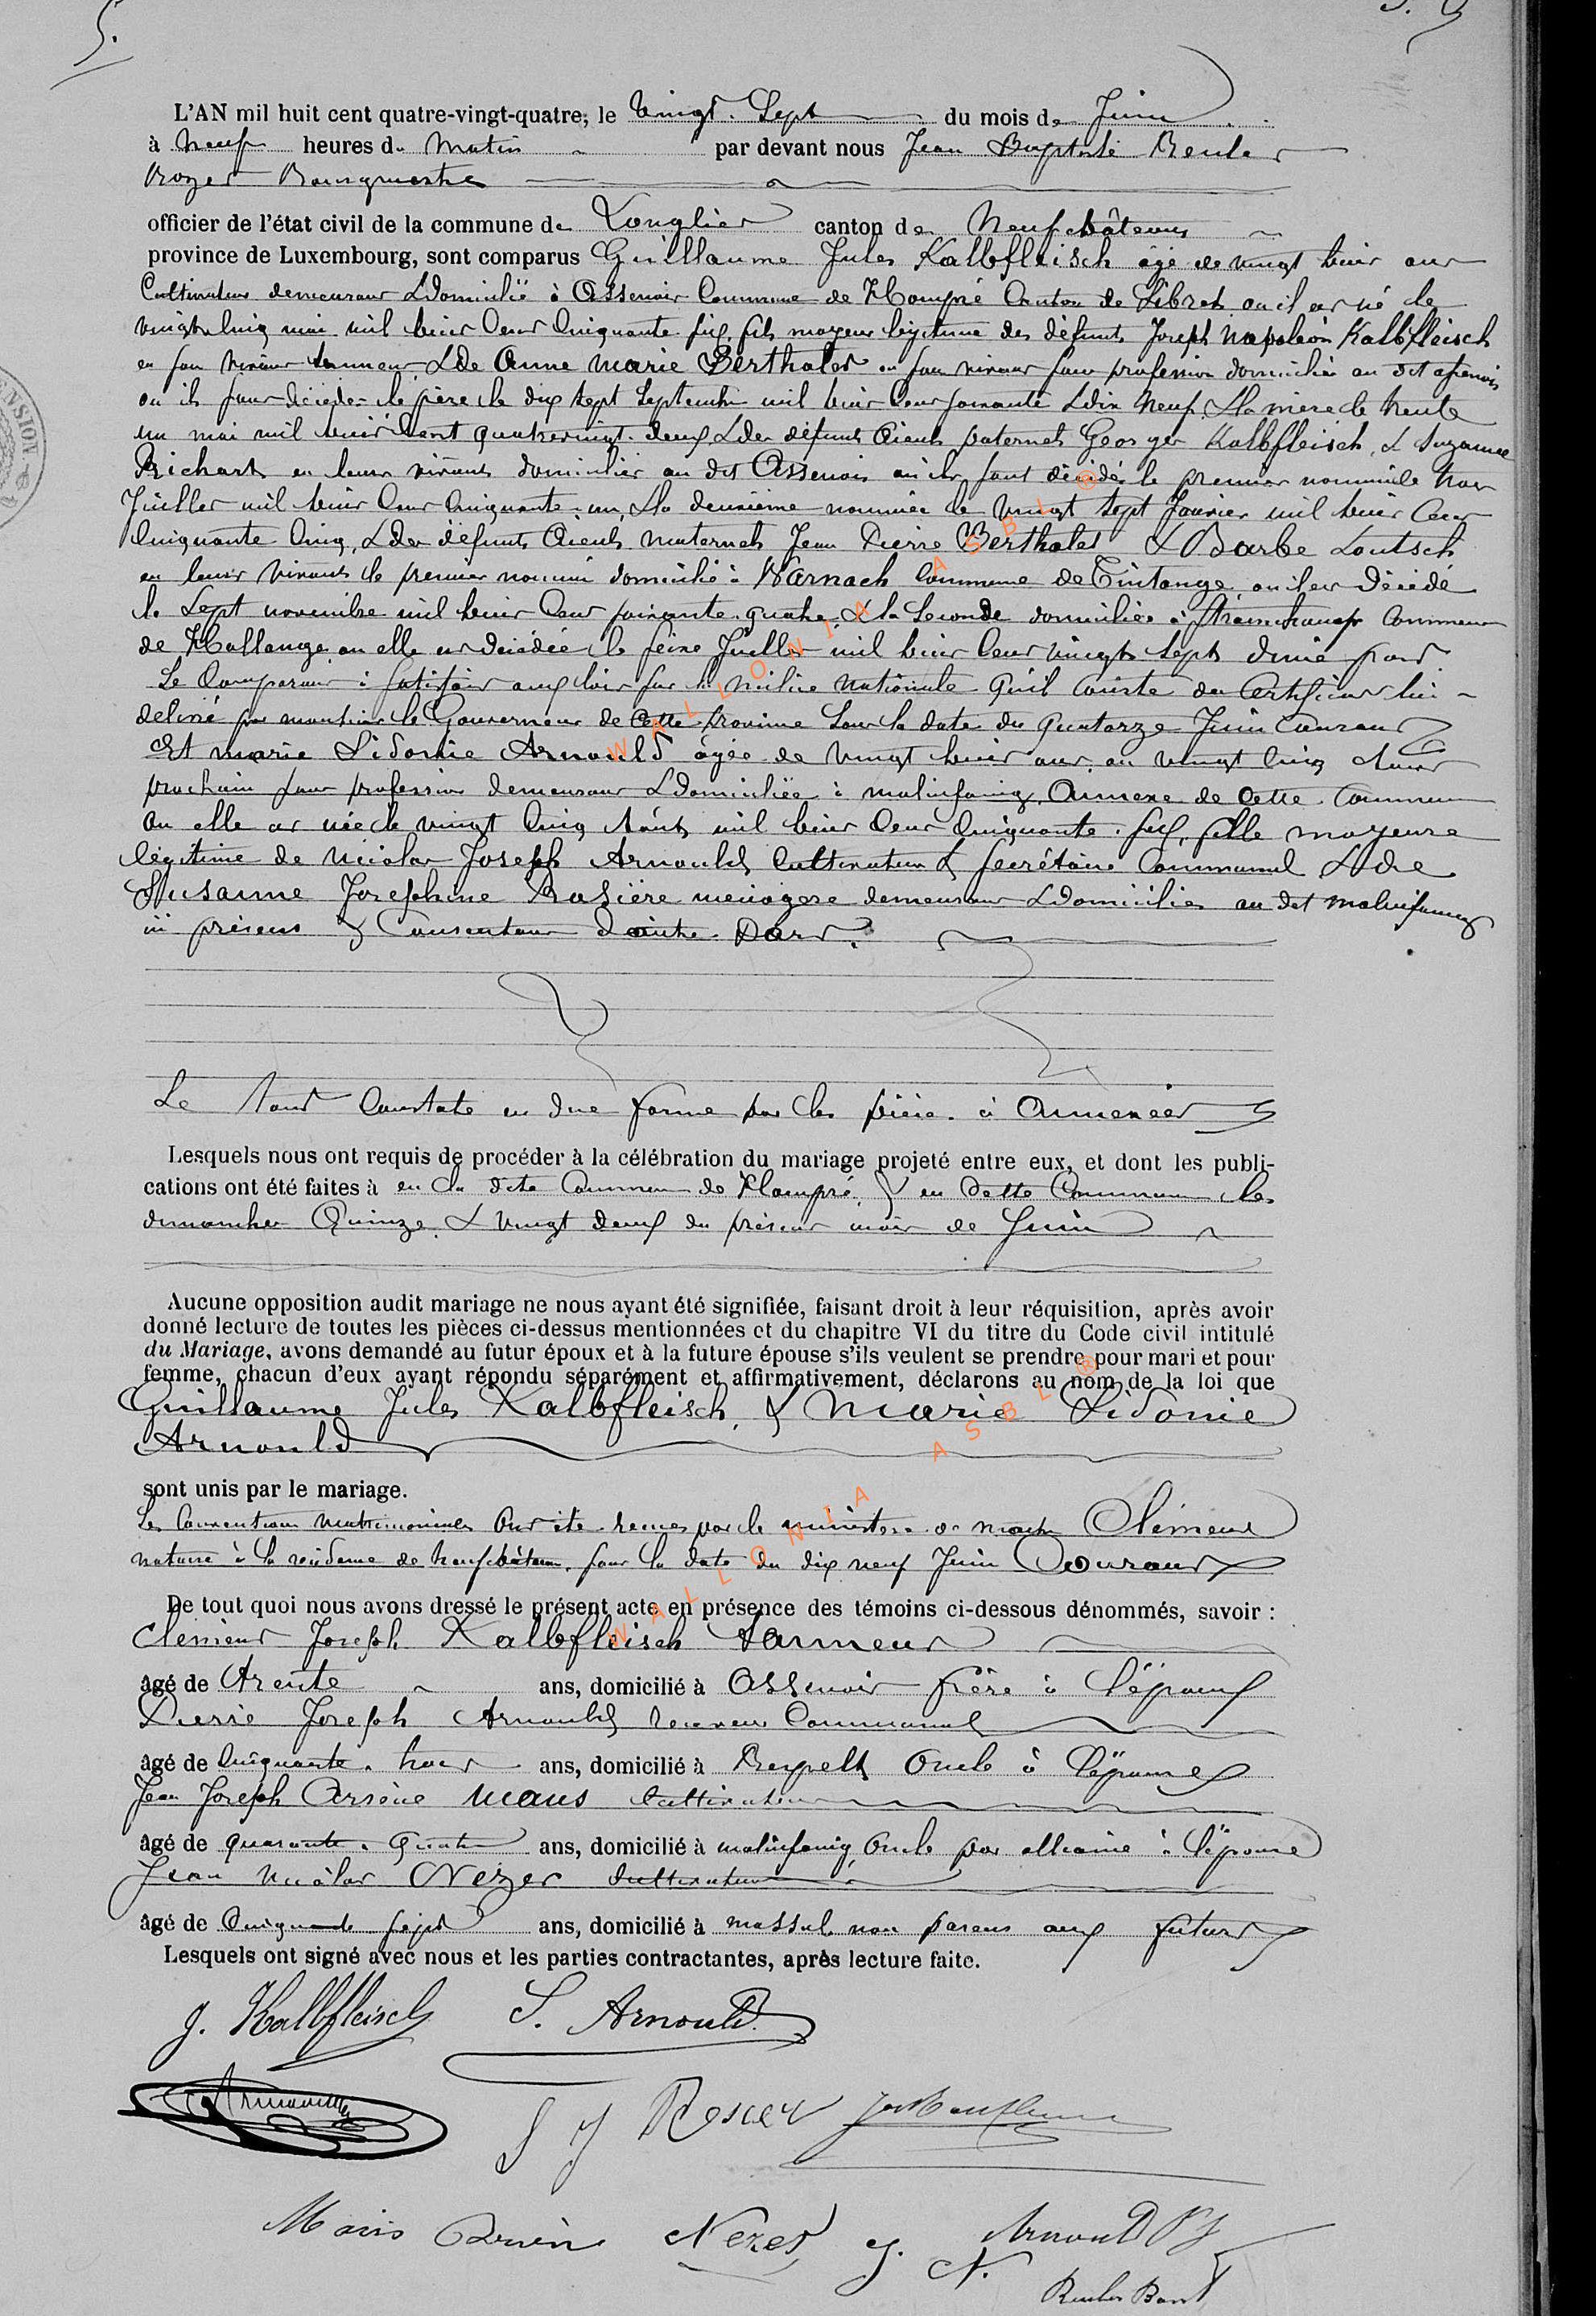 5.
L'AN mil huit cent quatre-vingt-quatre, le vingt-Sept du mois de Juin
à neuf heures du Matin par devant nous Jean Baptiste Reuler
Bourgmestre
officier de l'état civil de la commune de Longlier canton de Neufchâteau
province de Luxembourg, sont comparus Guillaume Jules Kalbfleisch âgé de vingt huit ans
Cultivateur demeurant & domicilié à Assenois Commune de Hompré Canton de Sibret où il est né le
vingt cinq mai mil huit Cent Cinquante six, fils majeur légitime des défunts Joseph Napoléon Kalbfleisch
en son vivant tanneur & de Anne Marie Bertholet en son vivant sans profession domiciliés au dit assenois
où ils sont décédés le père le dix sept Septembre mil huit Cent soixante & dix neuf & la mère le trente
un mai mil huit Cent quatrevingt-deux & des défunts aïeuls paternels Georges Kalbfleisch & Suzanne
Richart en leurs vivants domiciliés au dit Assenois où ils sont décédés le premier nommé le trois
Juillet mil huit Cent Cinquante-un, & la deuxième nommée le vingt sept Janvier mil huit Cent
Cinquante Cinq, & des défunts aïeuls maternels Jean Pierre Bertholet & Barbe Loutsch
en leurs vivants le premier nommé domicilié à Warnach Commune de Tintange, où il est décédé
le Sept novembre mil huit Cent soixante-quatre & la Seconde domiciliée à Strainchamps Commune
de Hollange où elle est décédée le seize Juillet mil huit Cent vingt sept d'une part.
Le Comparant a satisfait aux lois sur la milice Nationale qu'il conste du Certificat lui
délivré par monsieur le Gouverneur de Cette Province Sous la date du quatorze Juin Courant
Et marie Sidonie Arnould âgée de vingt huit ans au vingt Cinq Août
prochain sans profession demeurant & domiciliée à malinfaing, Annexe de Cette Commune
où elle est née le vingt Cinq Août mil huit Cent Cinquante-six, fille majeure
légitime de Nicolas Joseph Arnould Cultivateur & Secrétaire Communal & de
Susanne Josephine Rosière ménagère demeurant & domiciliés au dit malinfaing
ici présens & Consentant d'autre Part.
Le tout Constaté en due forme par les pièces ci Annexées
Lesquels nous ont requis de procéder à la célébration du mariage projeté entre eux, et dont les publi-
cations ont été faites à en la dite Commune de Hompré & en Cette Commune les
dimanches Quinze & vingt deux du présent mois de Juin
Aucune opposition audit mariage ne nous ayant été signifiée, faisant droit à leur réquisition, après avoir
donné lecture de toutes les pièces ci-dessus mentionnées et du chapitre VI du titre du Code civil intitulé
du Mariage, avons demandé au futur époux et à la future épouse s'ils veulent se prendre pour mari et pour
femme, chacun d'eux ayant répondu séparément et affirmativement, déclarons au nom de la loi que
Guillaume Jules Kalbfleisch, & Marie Sidonie
Arnould
sont unis par le mariage.
Les Conventions matrimoniales ont été reçues par le ministère de maître Clément
notaire à la résidence de Neufchâteau, sous la date du dix neuf Juin Courant
De tout quoi nous avons dressé le présent acte en présence des témoins ci-dessous dénommés, savoir :
Clément Joseph Kalbfleisch tanneur
âgé de trente ans, domicilié à Assenois frère à l'époux
Pierre Joseph Arnould receveur Communal
âgé de Cinquante-trois ans, domicilié à Oncle à l'épouse
Jean Joseph Arsène Maus Cultivateur
âgé de quarante-quatre ans, domicilié à malinfaing, Oncle par alliance à l'épouse
Jean Nicolas Nezer Cultivateur
âgé de Cinquante sept ans, domicilié à massul non parent aux futurs
Lesquels ont signé avec nous et les parties contractantes, après lecture faite.
J. Kalbfleisch S. Arnould
S J Rosier
Maus Arsène Nezer J. N. Arnould P J
WALLONIA ASBL ®
WALLONIA ASBL ®